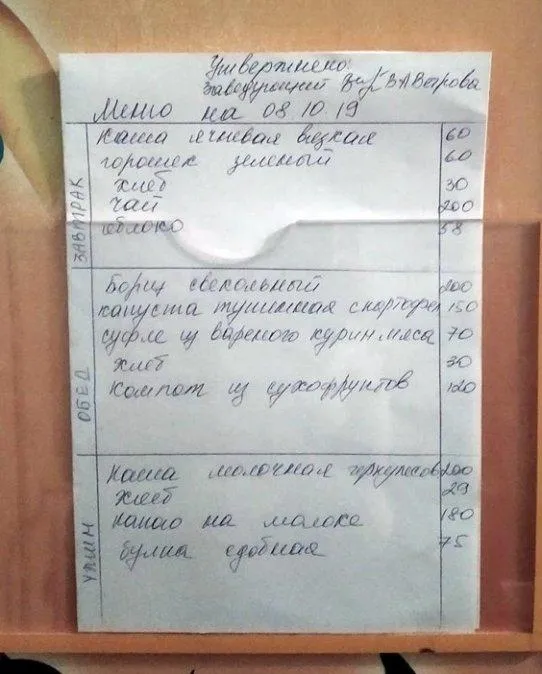 Утверждено:
Заведующий В.А. Ветрова
Меню на 08.10.19
ЗАВТРАК
Каша ячневая вязкая 60
горошек зеленый 60
хлеб 30
чай 200
яблоко 58
ОБЕД
Борщ свекольный 200
капуста тушинная с картофел 150
суфле из вареного курин.мяса 70
хлеб 30
компот из сухофруктов 120
УЖИН
Каша молочная геркулесов 200
хлеб 29
какао на молоке 180
булка сдобная 75